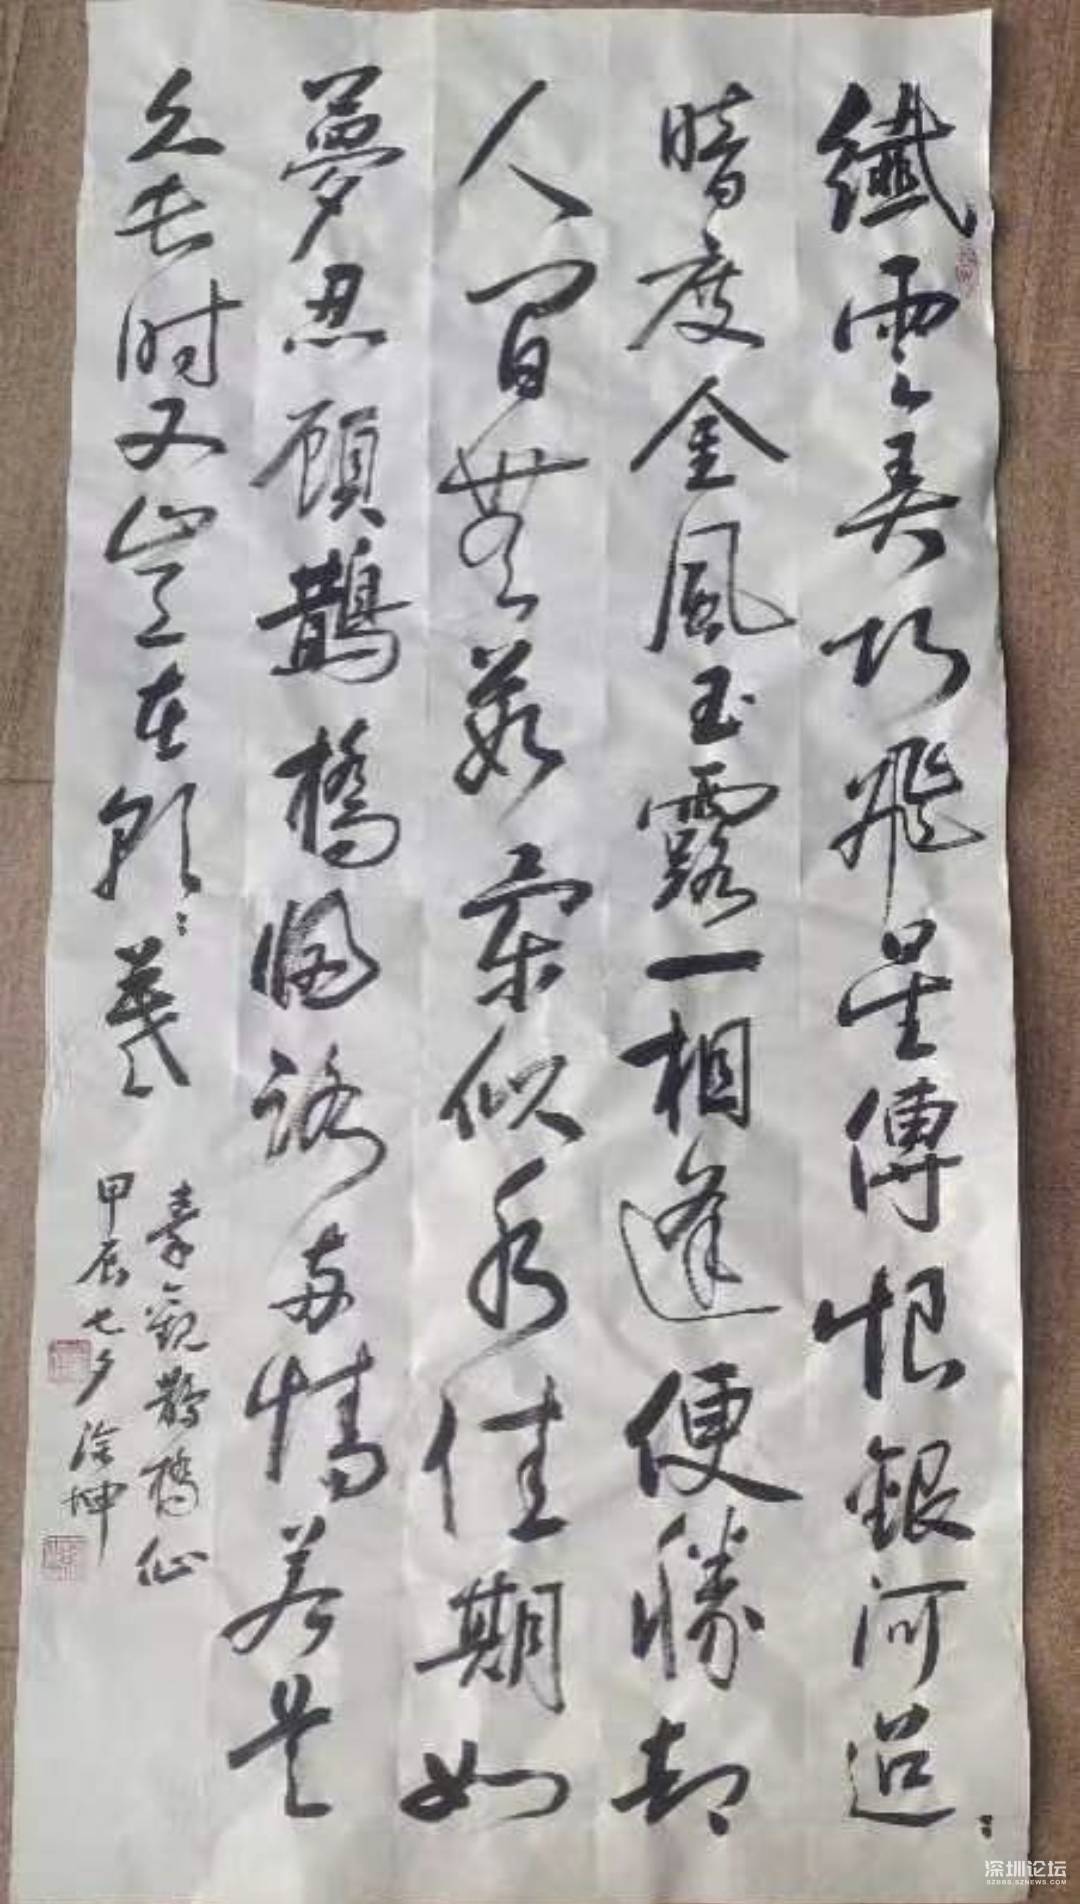 纖雲弄巧飛星傳恨銀河迢〻
暗度金風玉露一相逢便勝却
人間無數柔似水佳期如
夢忍顧鵲橋歸路兩情若是
久長時又豈在朝〻暮
秦觀鵲橋仙
甲辰七夕涂坤
深圳论坛
SZBBS.SZNEWS.COM